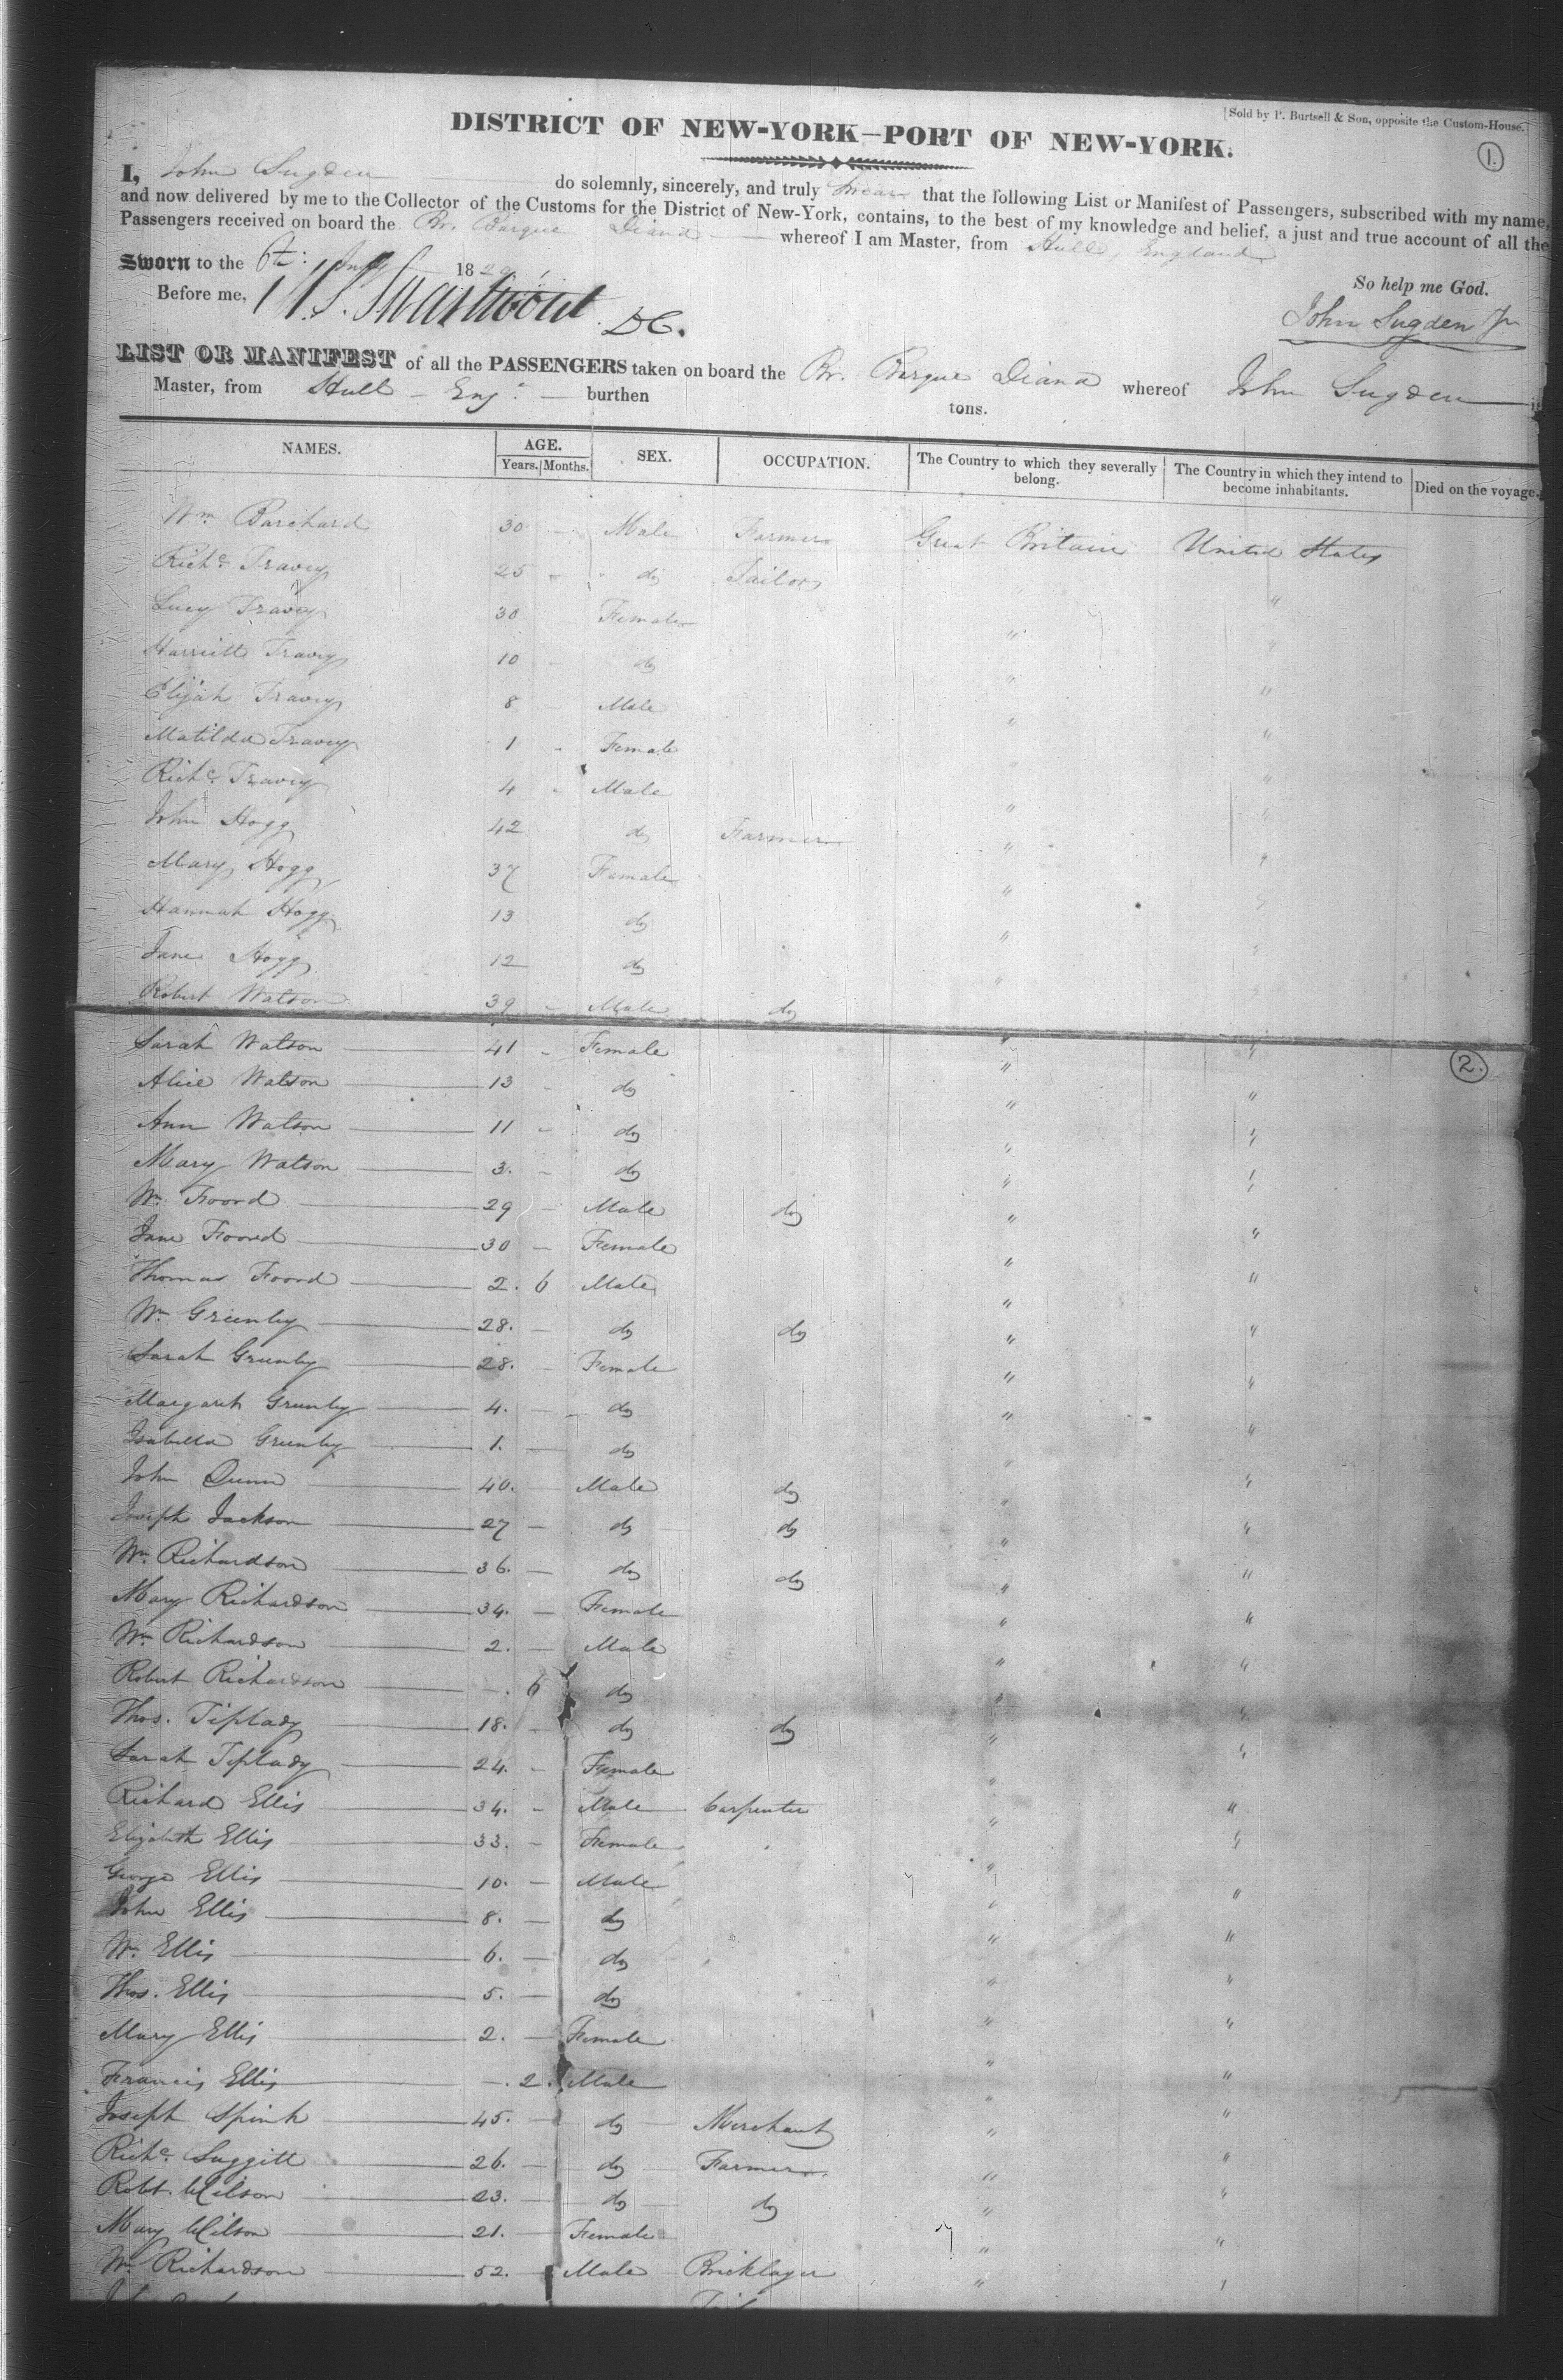 [Sold by P. Burtsell & Son, opposite the Custom-House.]
DISTRICT OF NEW-YORK—PORT OF NEW-YORK.
1.
I, John Sugden do solemnly, sincerely, and truly Swear that the following List or Manifest of Passengers, subscribed with my name,
and now delivered by me to the Collector of the Customs for the District of New-York, contains, to the best of my knowledge and belief, a just and true account of all the
Passengers received on board the Br. Barque Diana whereof I am Master, from Hull, England
Sworn to the 6th: 1829
So help me God.
Before me, DC.
John Sugden Jr
LIST OR MANIFEST of all the PASSENGERS taken on board the Br. Barque Diana whereof John Sugden is
Master, from Hull - Eng. burthen tons.
NAMES. AGE. SEX. OCCUPATION. The Country to which they severally belong. The Country in which they intend to become inhabitants. Died on the voyage.
Years. Months.
Wm Barchard 30 - Male Farmer Great Britain United States
Richd Travey 25 - do Tailor " "
Lucy Travey 30 Female " "
Harriett Travey 10 - do " "
Elijah Travey 8 - Male " "
Matilda Travey 1 - Female " "
Richd Travey 4 - Male " "
John Hogg 42 do Farmer " "
Mary Hogg 37 Female " "
Hannah Hogg 13 do " "
Jane Hogg 12 do " "
Robert Watson 39 - Male do " "
2.
Sarah Watson 41 - Female " "
Alice Watson 13 - do " "
Ann Watson 11 - do " "
Mary Watson 3. - do " "
Wm Foord 29 - Male do " "
Jane Foord 30 - Female " "
Thomas Foord 2. 6 Male " "
Wm Greenby 28. - do do " "
Sarah Greenby 28. - Female " "
Margaret Greenby 4. - do " "
Isabella Greenby 1. - do " "
John Dunn 40. - Male do " "
Joseph Jackson 27 - do do " "
Wm. Richardson 36. - do do " "
Mary Richardson 34. - Female " "
Wm Richardson 2. - Male " "
Robert Richardson -. 6 do " "
Thos. Tiplady 18. - do do " "
Sarah Tiplady 24. - Female " "
Richard Ellis 34. - Male Carpenter " "
Elizabeth Ellis 33. - Female " "
George Ellis 10. - Male " "
John Ellis 8. - do " "
Wm. Ellis 6. - do " "
Thos. Ellis 5. - do " "
Mary Ellis 2. - Female " "
Francis Ellis -. 2. Male " "
Joseph Spink 45. - do Merchant " "
Richd. Suggitt 26. - do Farmer " "
Robt. Wilson 23. - do do " "
Mary Wilson 21. - Female " "
Wm Richardson 52. - Male Bricklayer " "